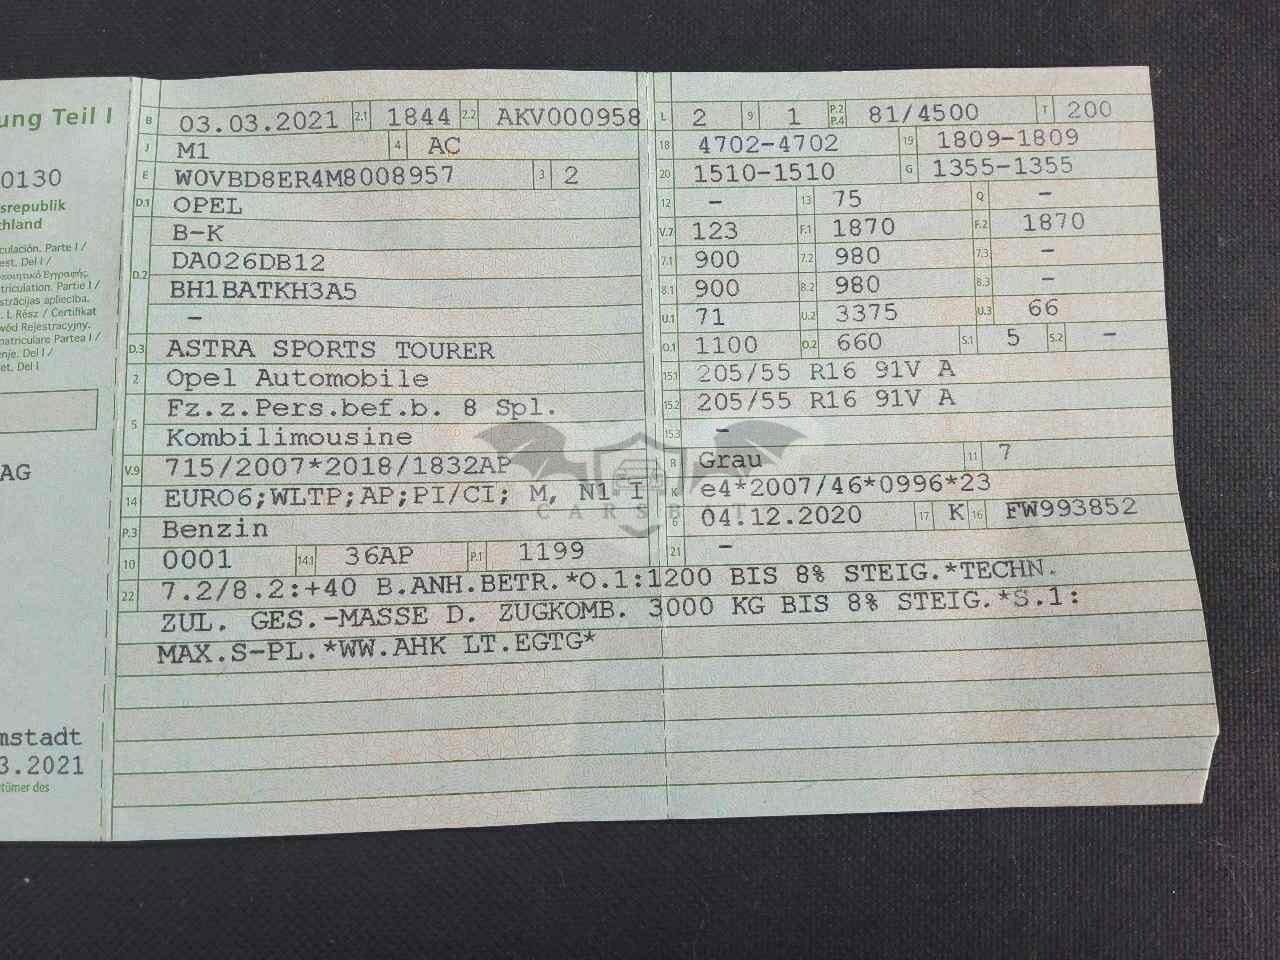 ung Teil I
0130
srepublik
chland
culación. Parte I /
est. Del I /
triculation. Partie I /
strācijas apliecība.
. I. Rész / Certifikat
wód Rejestracyjny.
matriculare Partea I /
enje. Del I /
et. Del I
AG
mstadt
3.2021
tümer des
B 03.03.2021 2.1 1844 2.2 AKV000958
J M1 4 AC
E W0VBD8ER4M8008957 3 2
D.1 OPEL
B-K
D.2 DA026DB12
BH1BATKH3A5
–
D.3 ASTRA SPORTS TOURER
2 Opel Automobile
5 Fz.z.Pers.bef.b. 8 Spl.
Kombilimousine
V.9 715/2007*2018/1832AP
14 EURO6;WLTP;AP;PI/CI; M, N1 I
P.3 Benzin
10 0001 14.1 36AP P.1 1199
L 2 9 1 P.2 P.4 81/4500 T 200
18 4702-4702 19 1809-1809
20 1510-1510 G 1355-1355
12 – 13 75 Q –
V.7 123 F.1 1870 F.2 1870
7.1 900 7.2 980 7.3 –
8.1 900 8.2 980 8.3 –
U.1 71 U.2 3375 U.3 66
O.1 1100 O.2 660 S.1 5 S.2 –
15.1 205/55 R16 91V A
15.2 205/55 R16 91V A
15.3 –
R Grau 11 7
K e4*2007/46*0996*23
6 04.12.2020 17 K 16 FW993852
21 –
22 7.2/8.2:+40 B.ANH.BETR.*O.1:1200 BIS 8% STEIG.*TECHN.
ZUL. GES.-MASSE D. ZUGKOMB. 3000 KG BIS 8% STEIG.*S.1:
MAX.S-PL.*WW.AHK LT.EGTG*